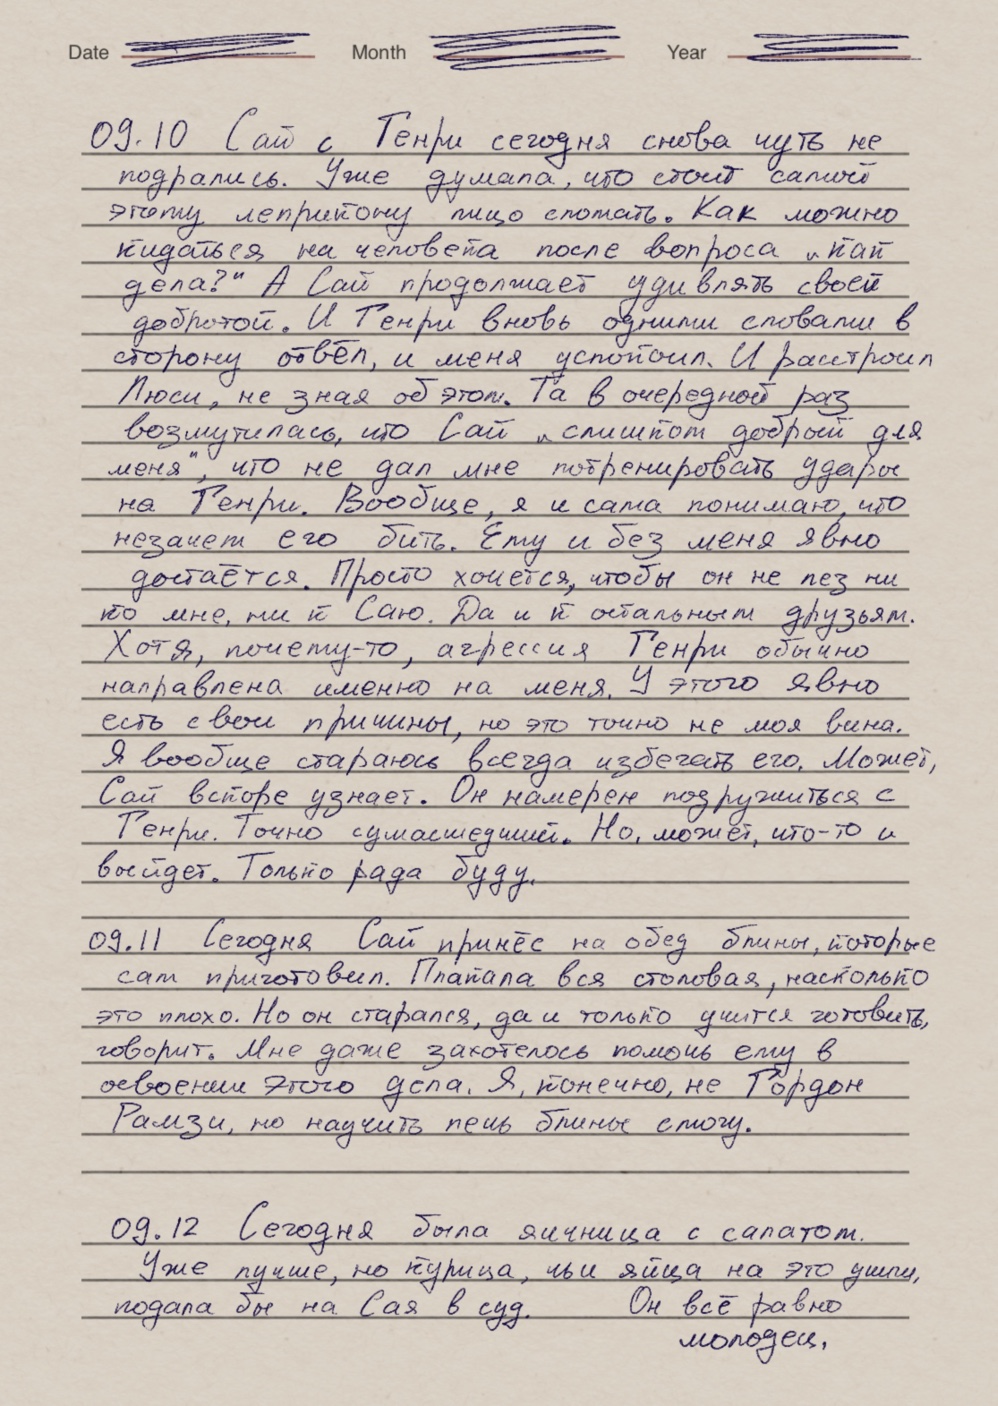 Date Month Year
09.10 Сай с Генри сегодня снова чуть не
подрались. Уже думала, что стоит самой
этому леприкону лицо сломать. Как можно
кидаться на человека после вопроса „как
дела?" А Сай продолжает удивлять своей
добротой. И Генри вновь одними словами в
сторону отвёл, и меня успокоил. И расстроил
Люси, не зная об этом. Та в очередной раз
возмутилась, что Сай „слишком добрый для
меня", что не дал мне потренировать удары
на Генри. Вообще, я и сама понимаю, что
незачем его бить. Ему и без меня явно
достаётся. Просто хочется, чтобы он не лез ни
ко мне, ни к Саю. Да и к остальным друзьям.
Хотя, почему-то, агрессия Генри обычно
направлена именно на меня. У этого явно
есть свои причины, но это точно не моя вина.
Я вообще стараюсь всегда избегать его. Может,
Сай вскоре узнает. Он намерен подружиться с
Генри. Точно сумасшедший. Но, может, что-то и
выйдет. Только рада буду.
09.11 Сегодня Сай принёс на обед блины, которые
сам приготовил. Плакала вся столовая, насколько
это плохо. Но он старался, да и только учится готовить,
говорит. Мне даже захотелось помочь ему в
освоении этого дела. Я, конечно, не Гордон
Рамзи, но научить печь блины смогу.
09.12 Сегодня была яичница с салатом.
Уже лучше, но курица, чьи яйца на это ушли,
подала бы на Сая в суд. Он всё равно
молодец.